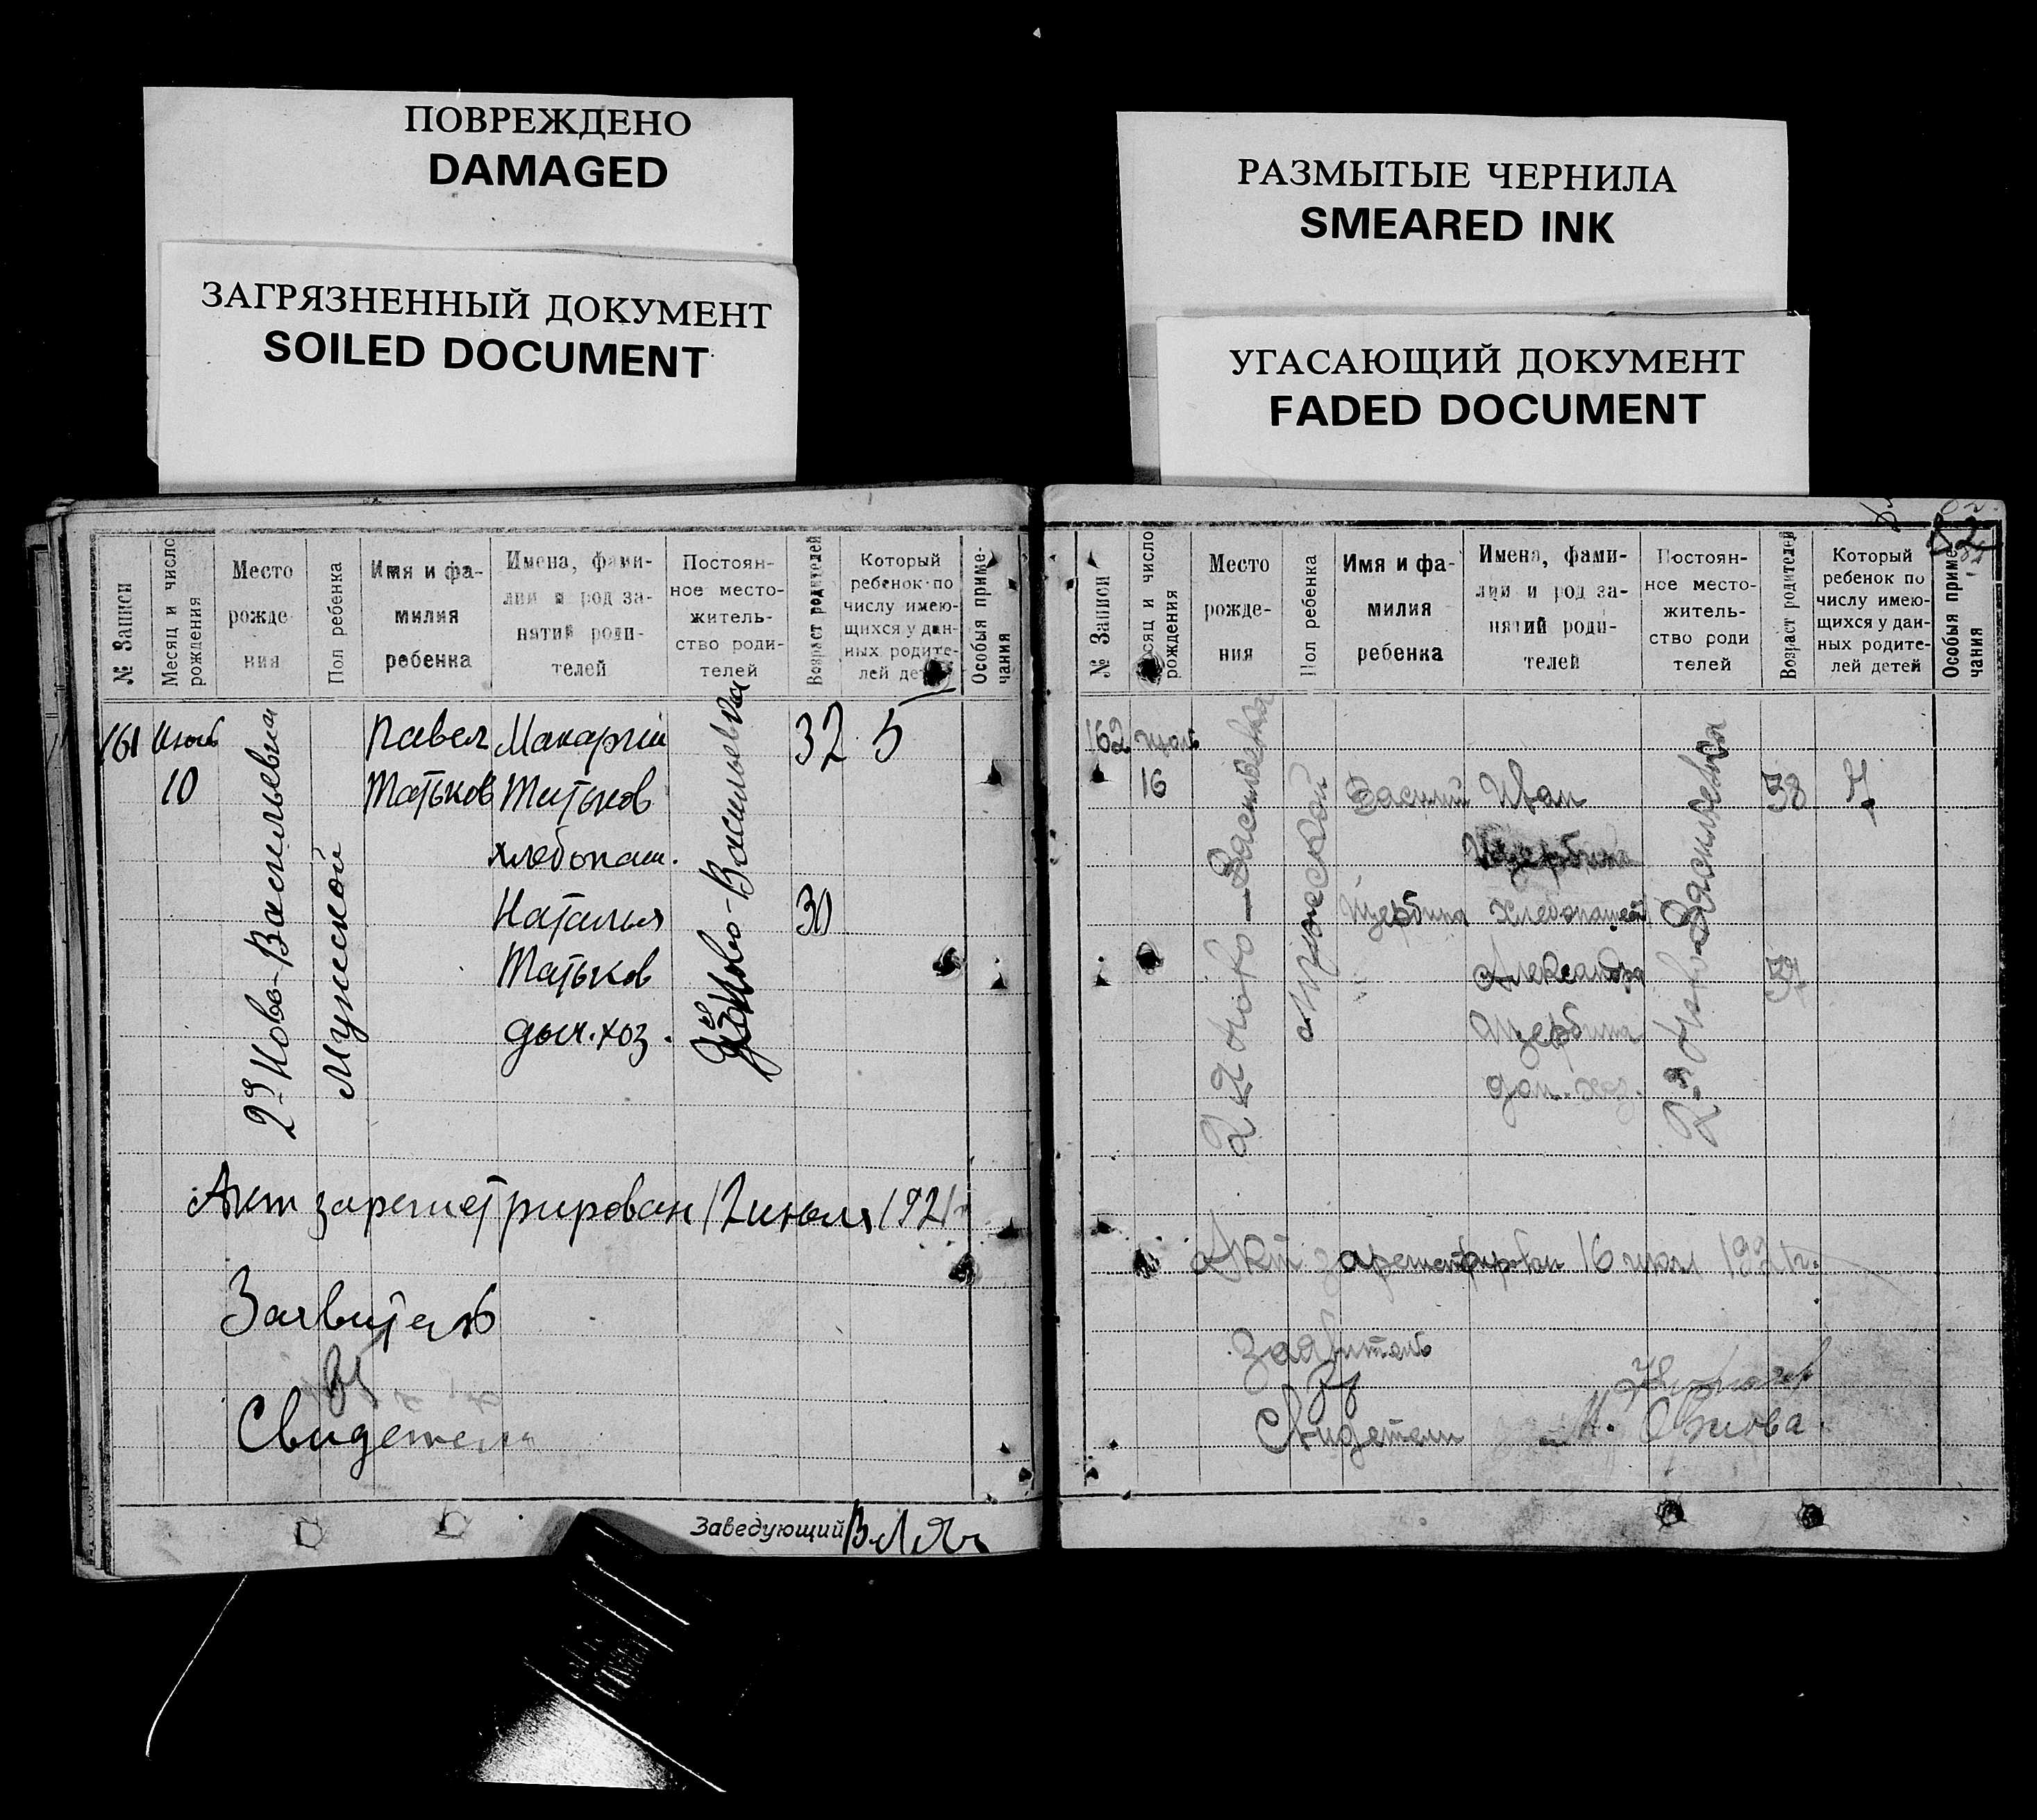 ПОВРЕЖДЕНО
DAMAGED
ЗАГРЯЗНЕННЫЙ ДОКУМЕНТ
SOILED DOCUMENT
РАЗМЫТЫЕ ЧЕРНИЛА
SMEARED INK
УГАСАЮЩИЙ ДОКУМЕНТ
FADED DOCUMENT
№ Записи
Месяц и число
рождения
Место
рожде-
ния
Пол ребенка
Имя и фа-
милия
ребенка
Имена, фами-
лии и род за-
нятий роди-
телей
Постоян-
ное место-
житель-
ство роди-
телей
Возраст родителей
Который
ребенок по
числу имею-
щихся у дан-
ных родите-
лей детей
Особыя приме-
чания
161
Июль
10
2ое Ново-Васильевка
Мужской
Павел
Татьков
Макарий
Татьков
хлебопаш.
Наталья
Татьков
дом.хоз.
Ново-Васильевка
32
30
5
Акт зарегистрирован 12 июля 1921г
Заявитель
Свидетели
Заведующий
82
№ Записи
Месяц и число
рождения
Место
рожде-
ния
Пол ребенка
Имя и фа-
милия
ребенка
Имена, фами-
лии и род за-
нятий роди-
телей
Постоян-
ное место-
житель-
ство роди
телей
Возраст родителей
Который
ребенок по
числу имею-
щихся у дан-
ных родите-
лей детей
Особыя приме
чания
162
июль
16
2ое Ново-Васильевка
Мужской
Василий
Щербина
Иван
Щербина
хлебопашец
Александра
Щербина
дом.хоз.
2ое Ново-Васильевка
38
37
7
Акт зарегистрирован 16 июл 1921г.
Заявитель
Свидетели
М.